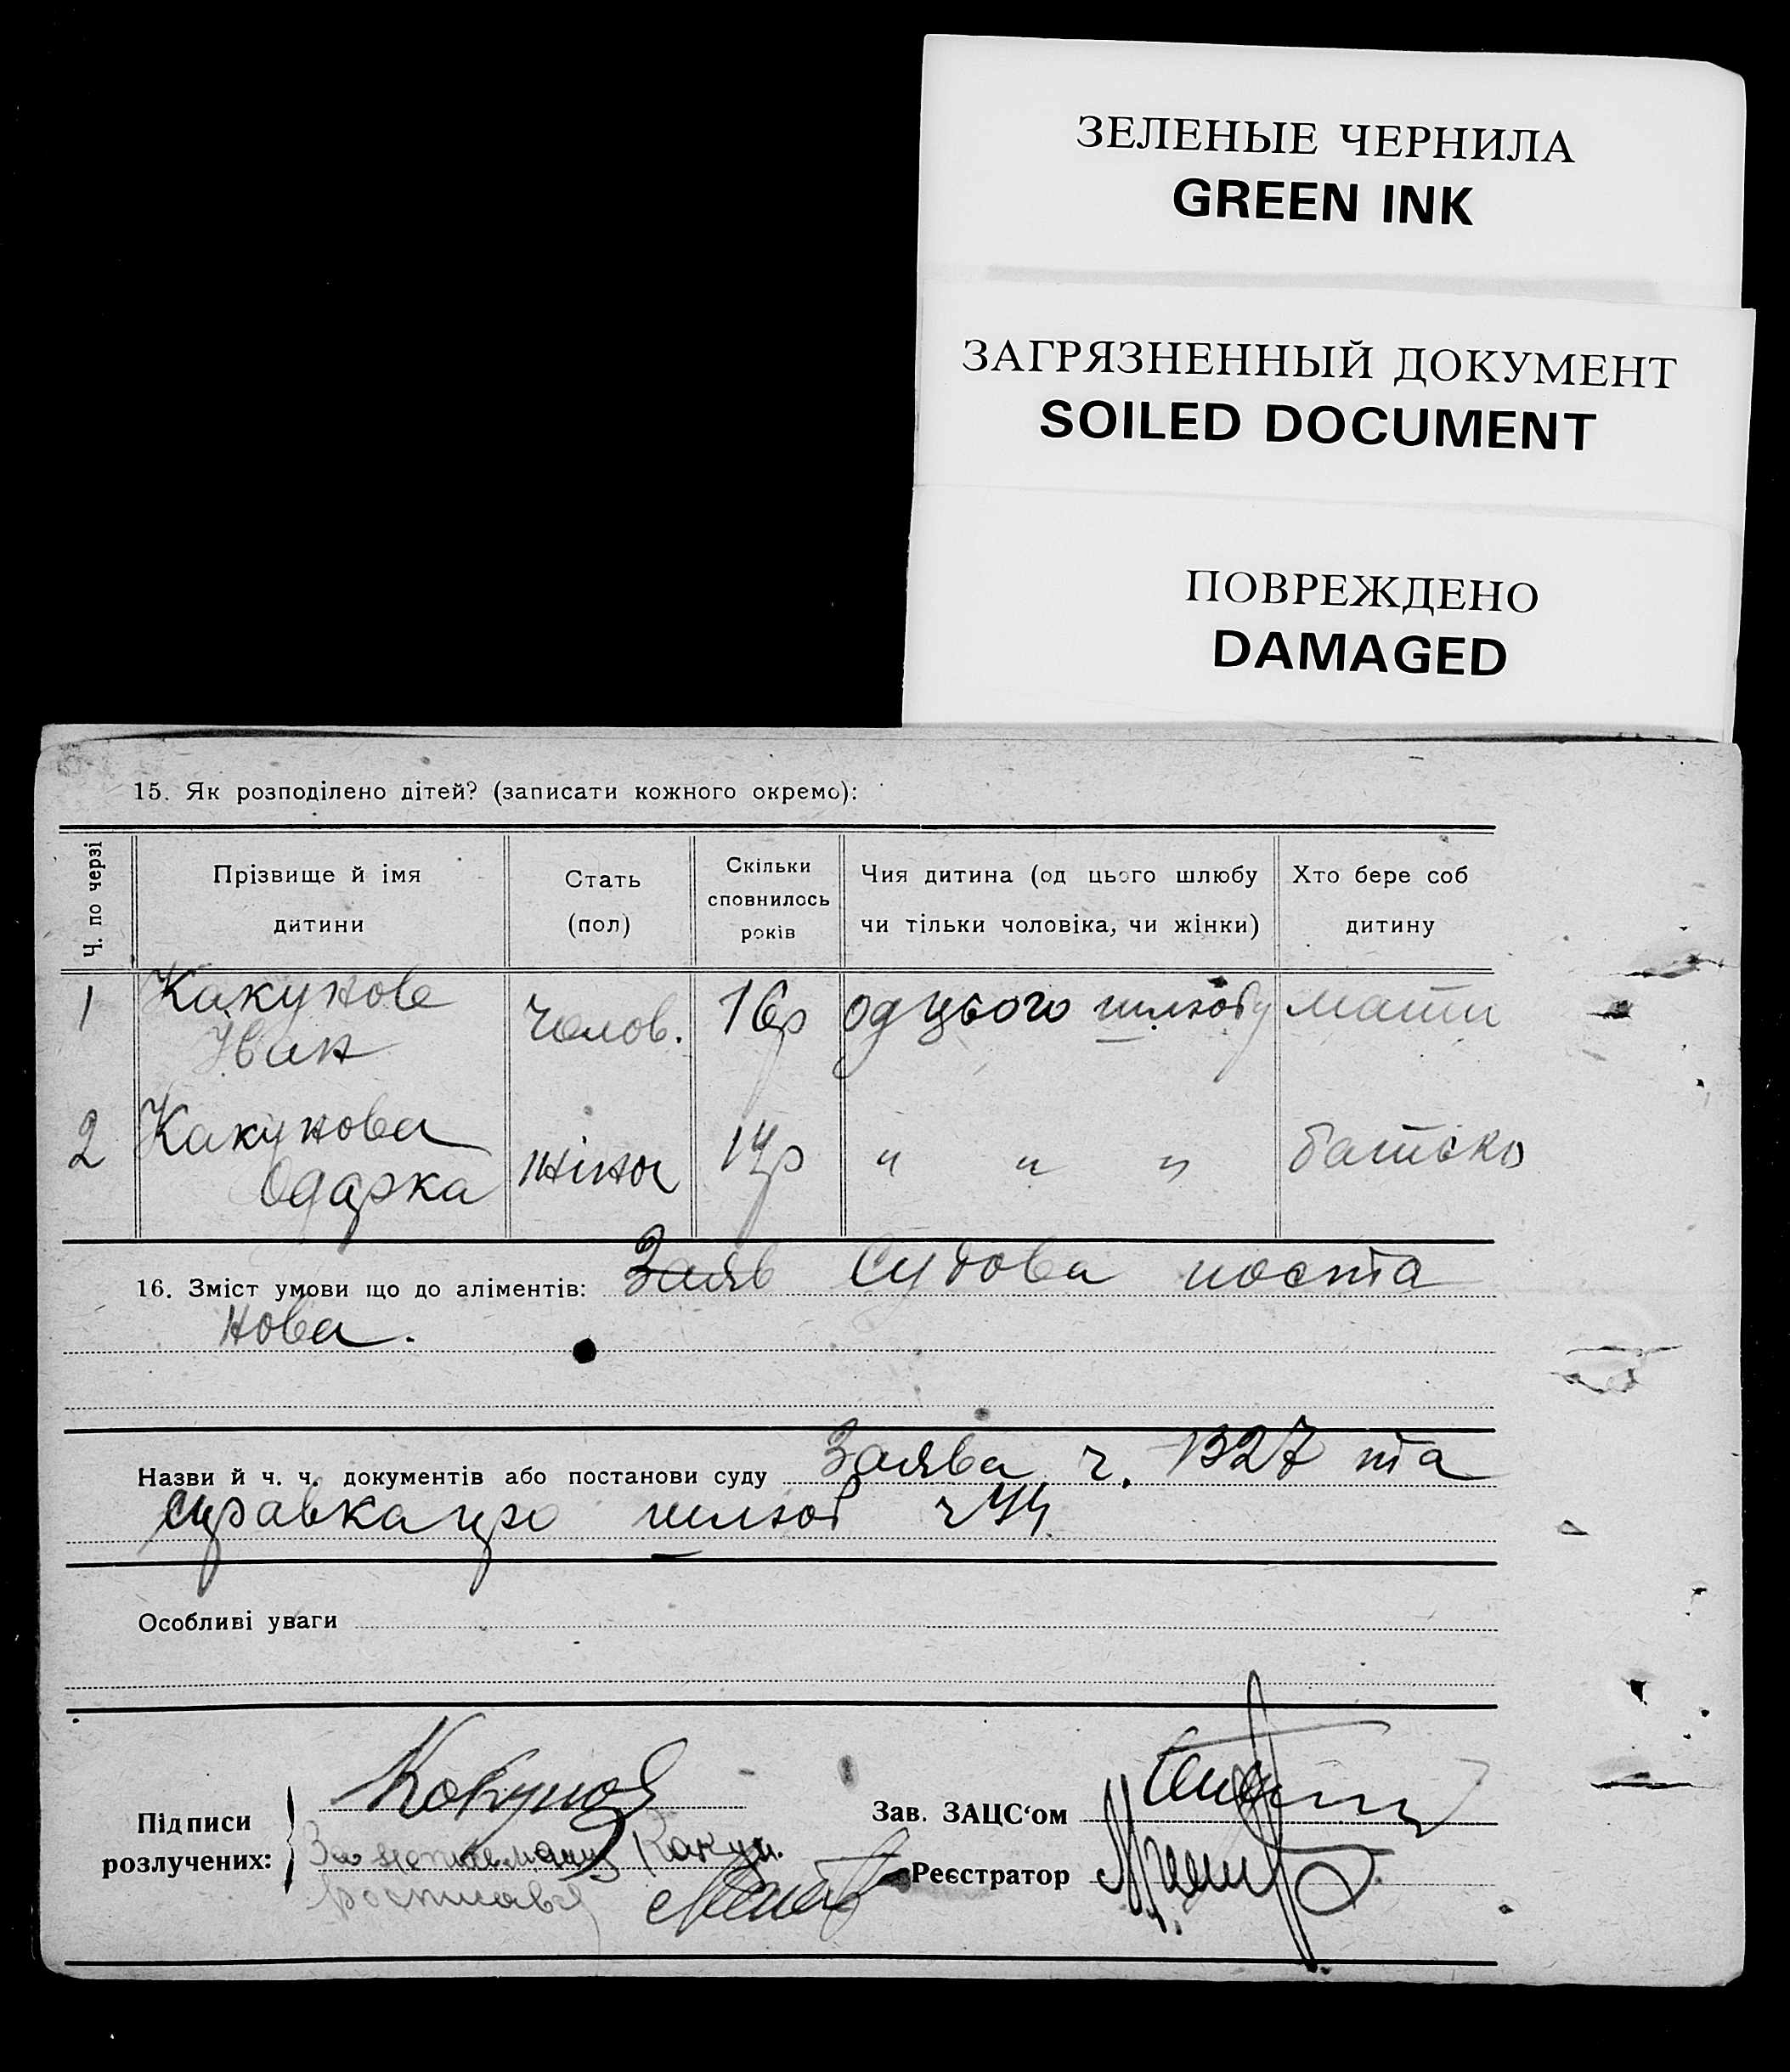 ЗЕЛЕНЫЕ ЧЕРНИЛА
GREEN INK
ЗАГРЯЗНЕННЫЙ ДОКУМЕНТ
SOILED DOCUMENT
ПОВРЕЖДЕНО
DAMAGED
15. Як розподілено дітей? (записати кожного окремо):
Ч. по черзі
Прізвище й імя
дитини
Стать
(пол)
Скільки
сповнилось
років
Чия дитина (од цього шлюбу
чи тільки чоловіка, чи жінки)
Хто бере соб
дитину
1 Какунове Чолов. 16р од цього шлюбу мати
Іван
2 Какунова жіноч 14р " " " батько
Одарка
16. Зміст умови що до аліментів: Заяв Судова поста
нова.
Назви й ч. ч. документів або постанови суду Заява ч. 1327 та
справка про шлюб ч 44
Особливі уваги
Підписи
розлучених:
За Какун.
Зав. ЗАЦС‘ом
Реєстратор